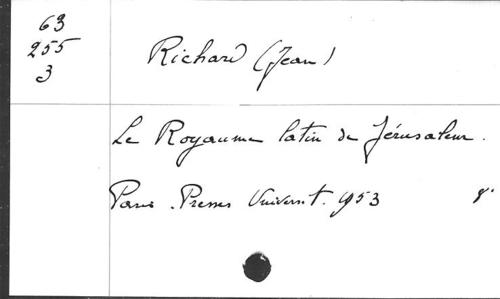 63
255
3
Richard (Jean)
Le Royaume latin de Jérusalem.
Paris. Presses Universit. 1953 8°